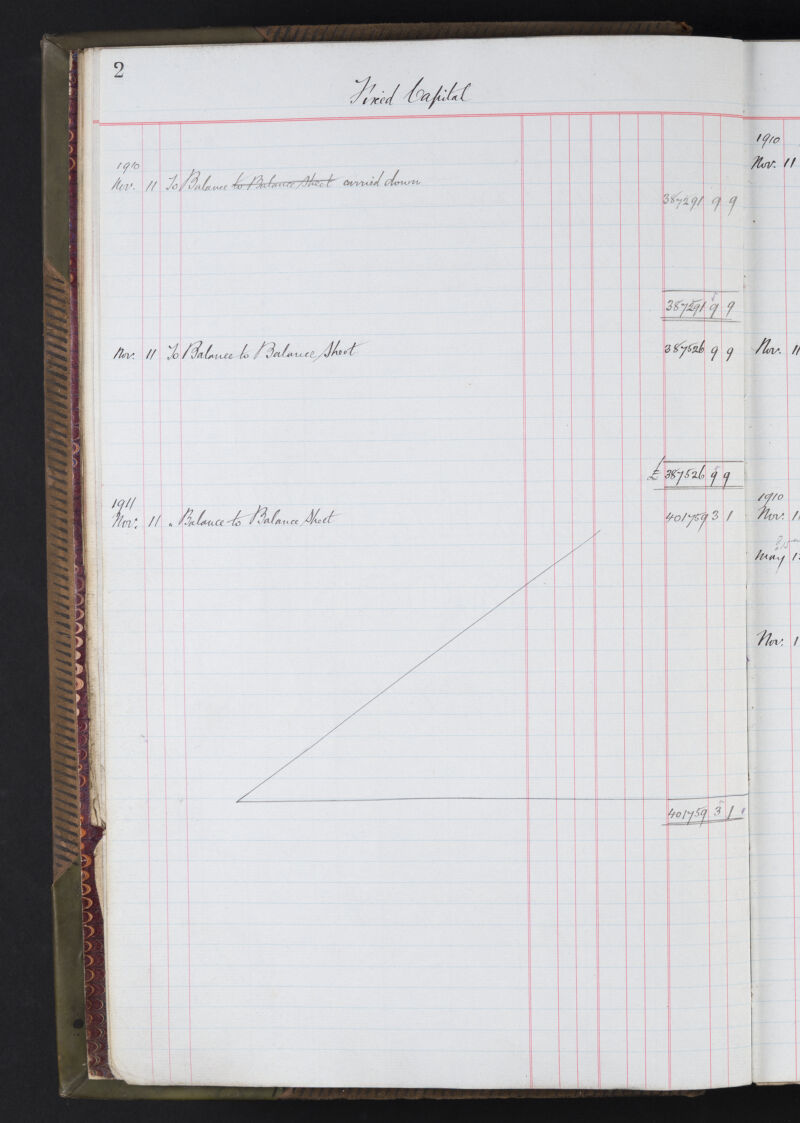 2
Fixed Capital
1910
Nov. 11 To Balance to Balance Sheet carried down
387291 9 9
387291 9 9
Nov. 11 To Balance to Balance Sheet 387526 9 9
£ 387526 9 9
1911
Nov. 11 " Balance to Balance Sheet 401759 3 1
401759 3 1
1910
Nov. 11
Nov. 11
1910
Nov. 11
May
Nov. 1